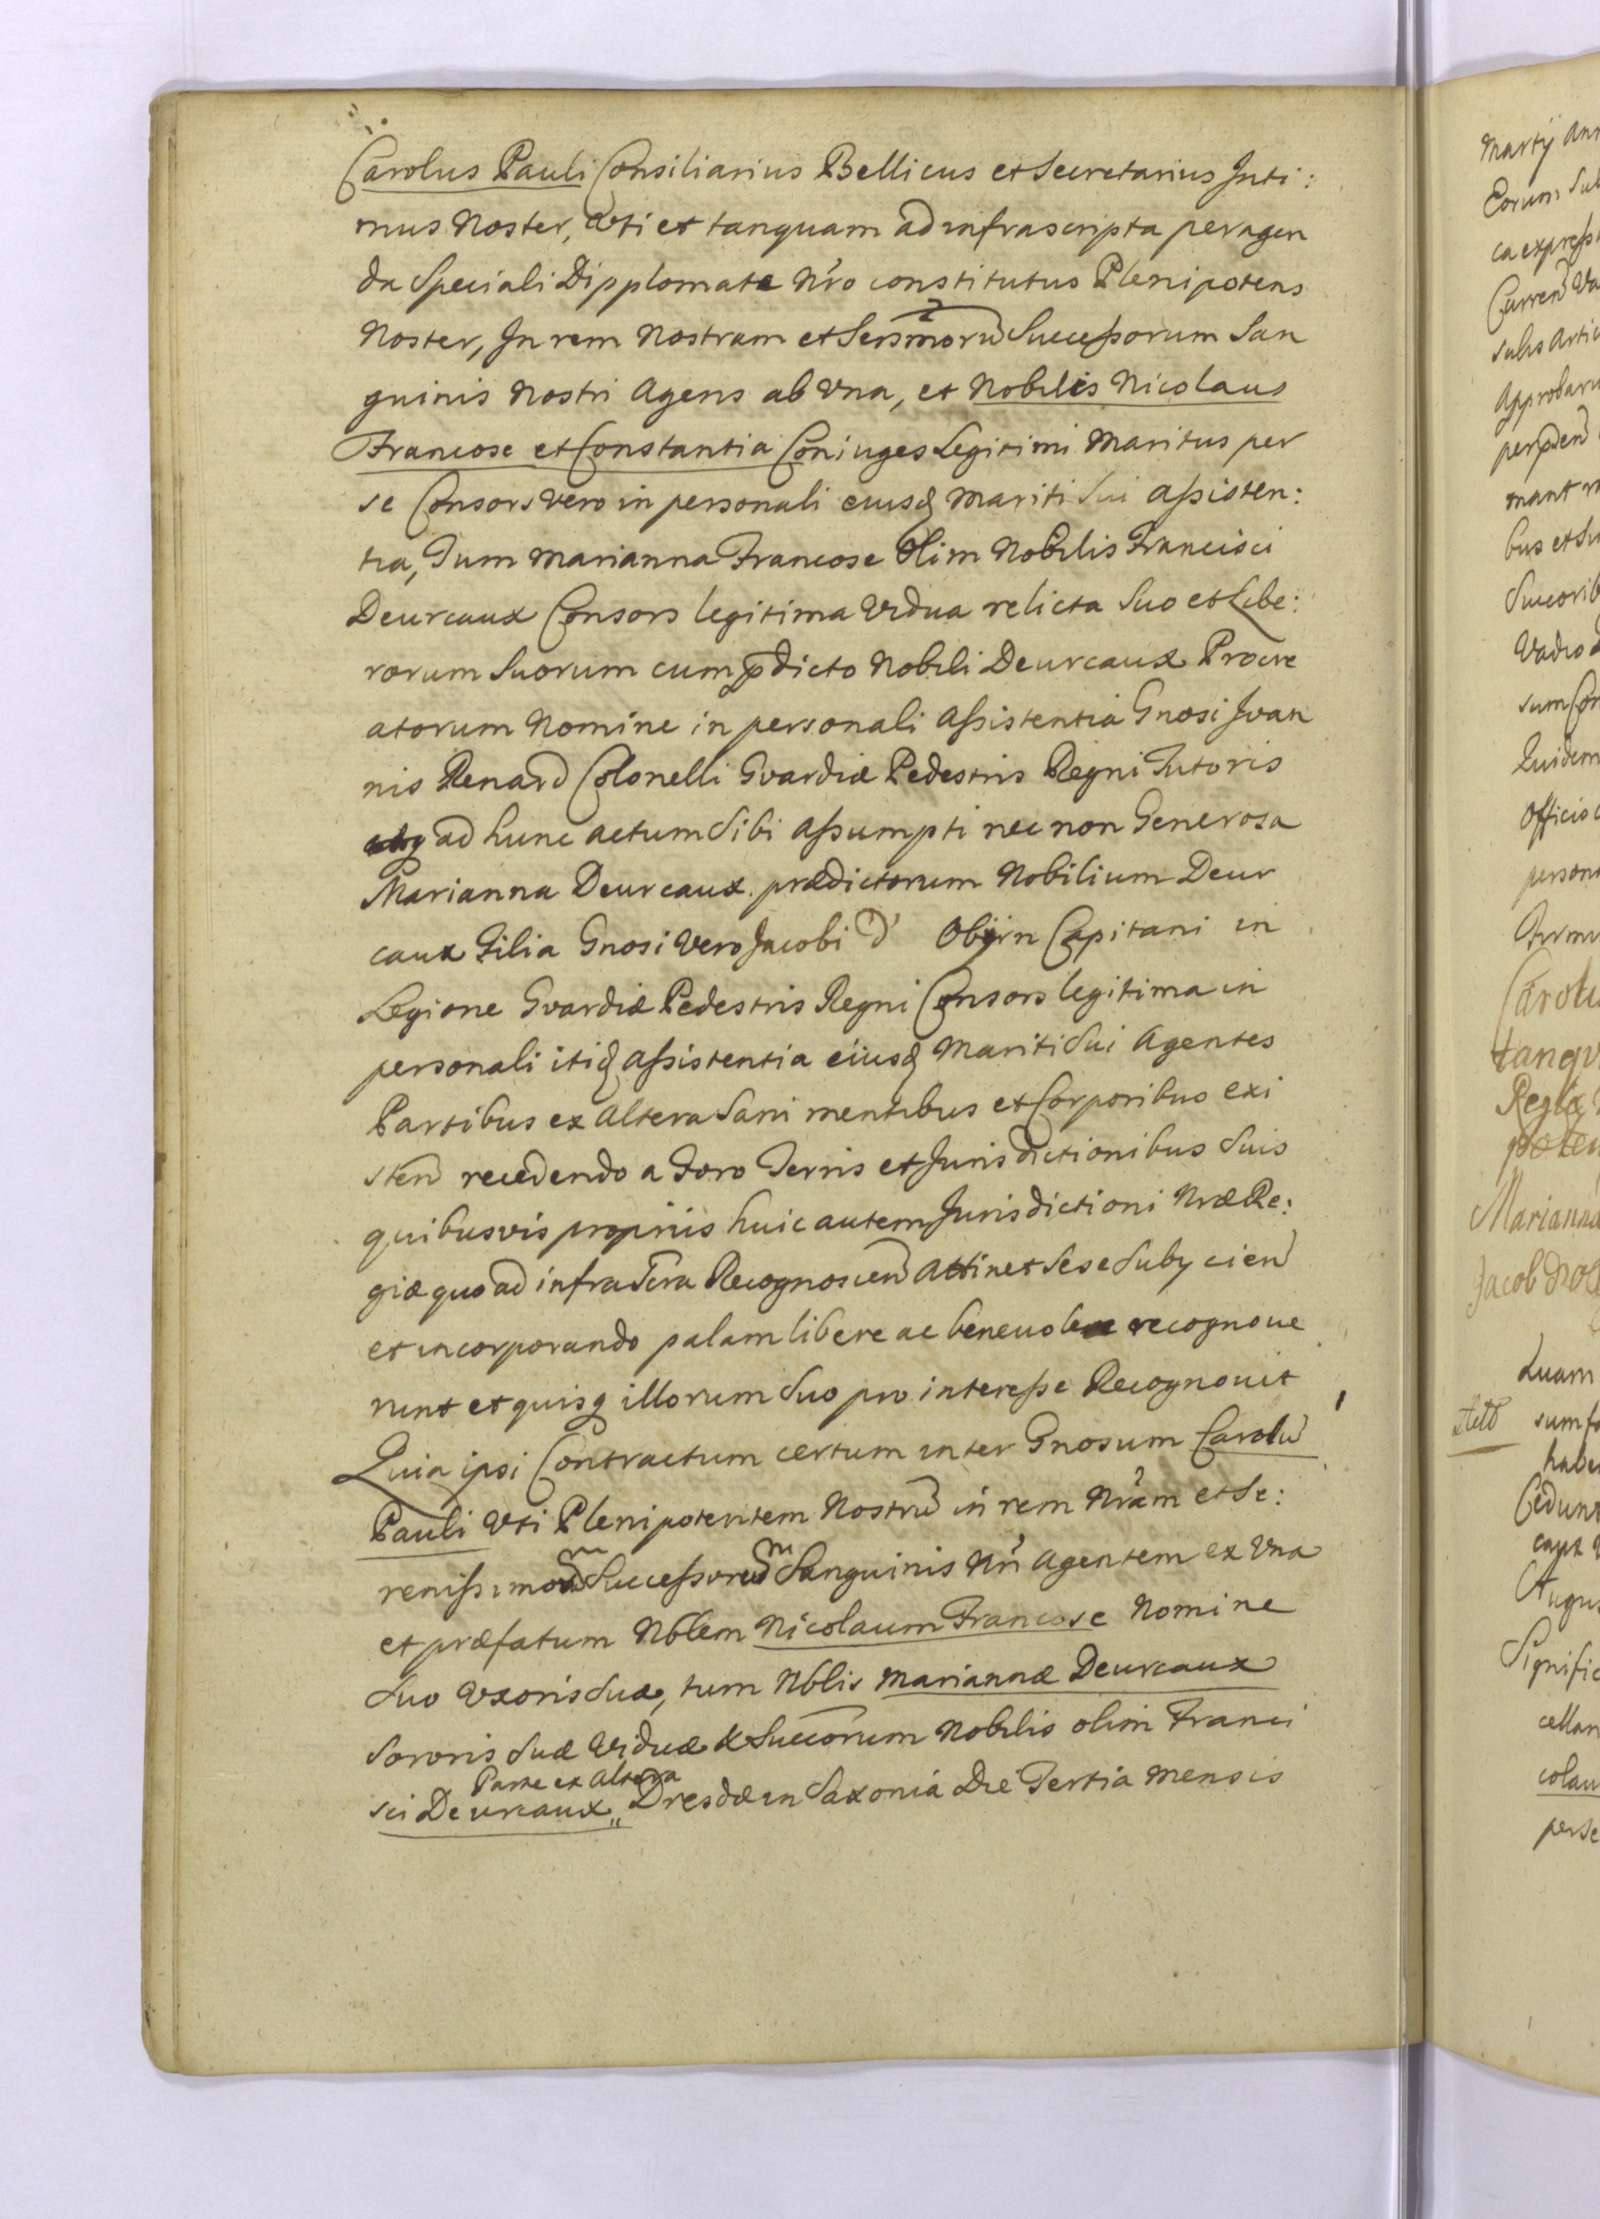 Carolus Pauli Consiliarius Bellicus et Secretarius Inti:
mus Noster, Vti et tanquam ad infrascripta peragen
da Speciali Dipplomate Nro constitutus Plenipotens
Noster, In rem Nostram et Sersmorũ Successorum San
guinis Nostri Agens ab Vna, et Nobilis Nicolaus
Francose et Constantia Coniuges Legitimi Maritus per
se Consors vero in personali eiusq Mariti Sui Assisten:
tia, Tum Marianna Francose Olim Nobilis Francisci
Deurcaux Consors legitima Vidua relicta Suo et Libe:
rorum Suorum cum pdicto Nobili Deurcaux Procre
atorum Nomine in personali Assistentia Gnosi Joan
nis Renard Colonelli Gvardiæ Pedestris Regni Tutoris
ad hunc actum Sibi Assumpti nec non Generosa
Marianna Deurcaux prædictorum Nobilium Deur
caux Filia Gnosi Vero Jacobi d' Obijrn Capitani in
Legione Gvardiæ Pedestris Regni Consors legitima in
personali itiq Assistentia eiusq Mariti Sui Agentes
Partibus ex Altera Sani mentibus et Corporibus exi
sten recedendo a Foro Terris et Jurisdictionibus Suis
quibusvis proprijs huic autem Jurisdictioni Nræ Re:
giæ quo ad infra Scra Recognoscen Attinet Sese Subycien
et incorporando palam libere ac beneuole recognoue
runt et quisq illorum Suo pro interesse Recognouit
Quia ipsi Contractum certum inter Gnosum Carolũ
Pauli Vti Plenipotentem Nostrũ in rem Nram et Se:
renissimorũ Successorũ Sanguinis Nri Agentem ex Vna
et præfatum Nblem Nicolaum Francose Nomine
Suo Vxoris Suæ, tum Nblis Mariannæ Deurcaux
Sororis Suæ Viduæ & Succorum Nobilis olim Franci
Parte ex Altera
sci Deurcaux Dresdæ in Saxonia Die Tertia Mensis
Marty Ann
Eorum Sub
ca express
Curren Va
Approbaru
bus et Su
Vadio
sum Con
Quidem
Officio
person
Carolu
tanqv
Regiæ
poten
Marianna
Jacob
Quam
sum
habe
Cedunt
Augus
Signific
cellan
colau
perse